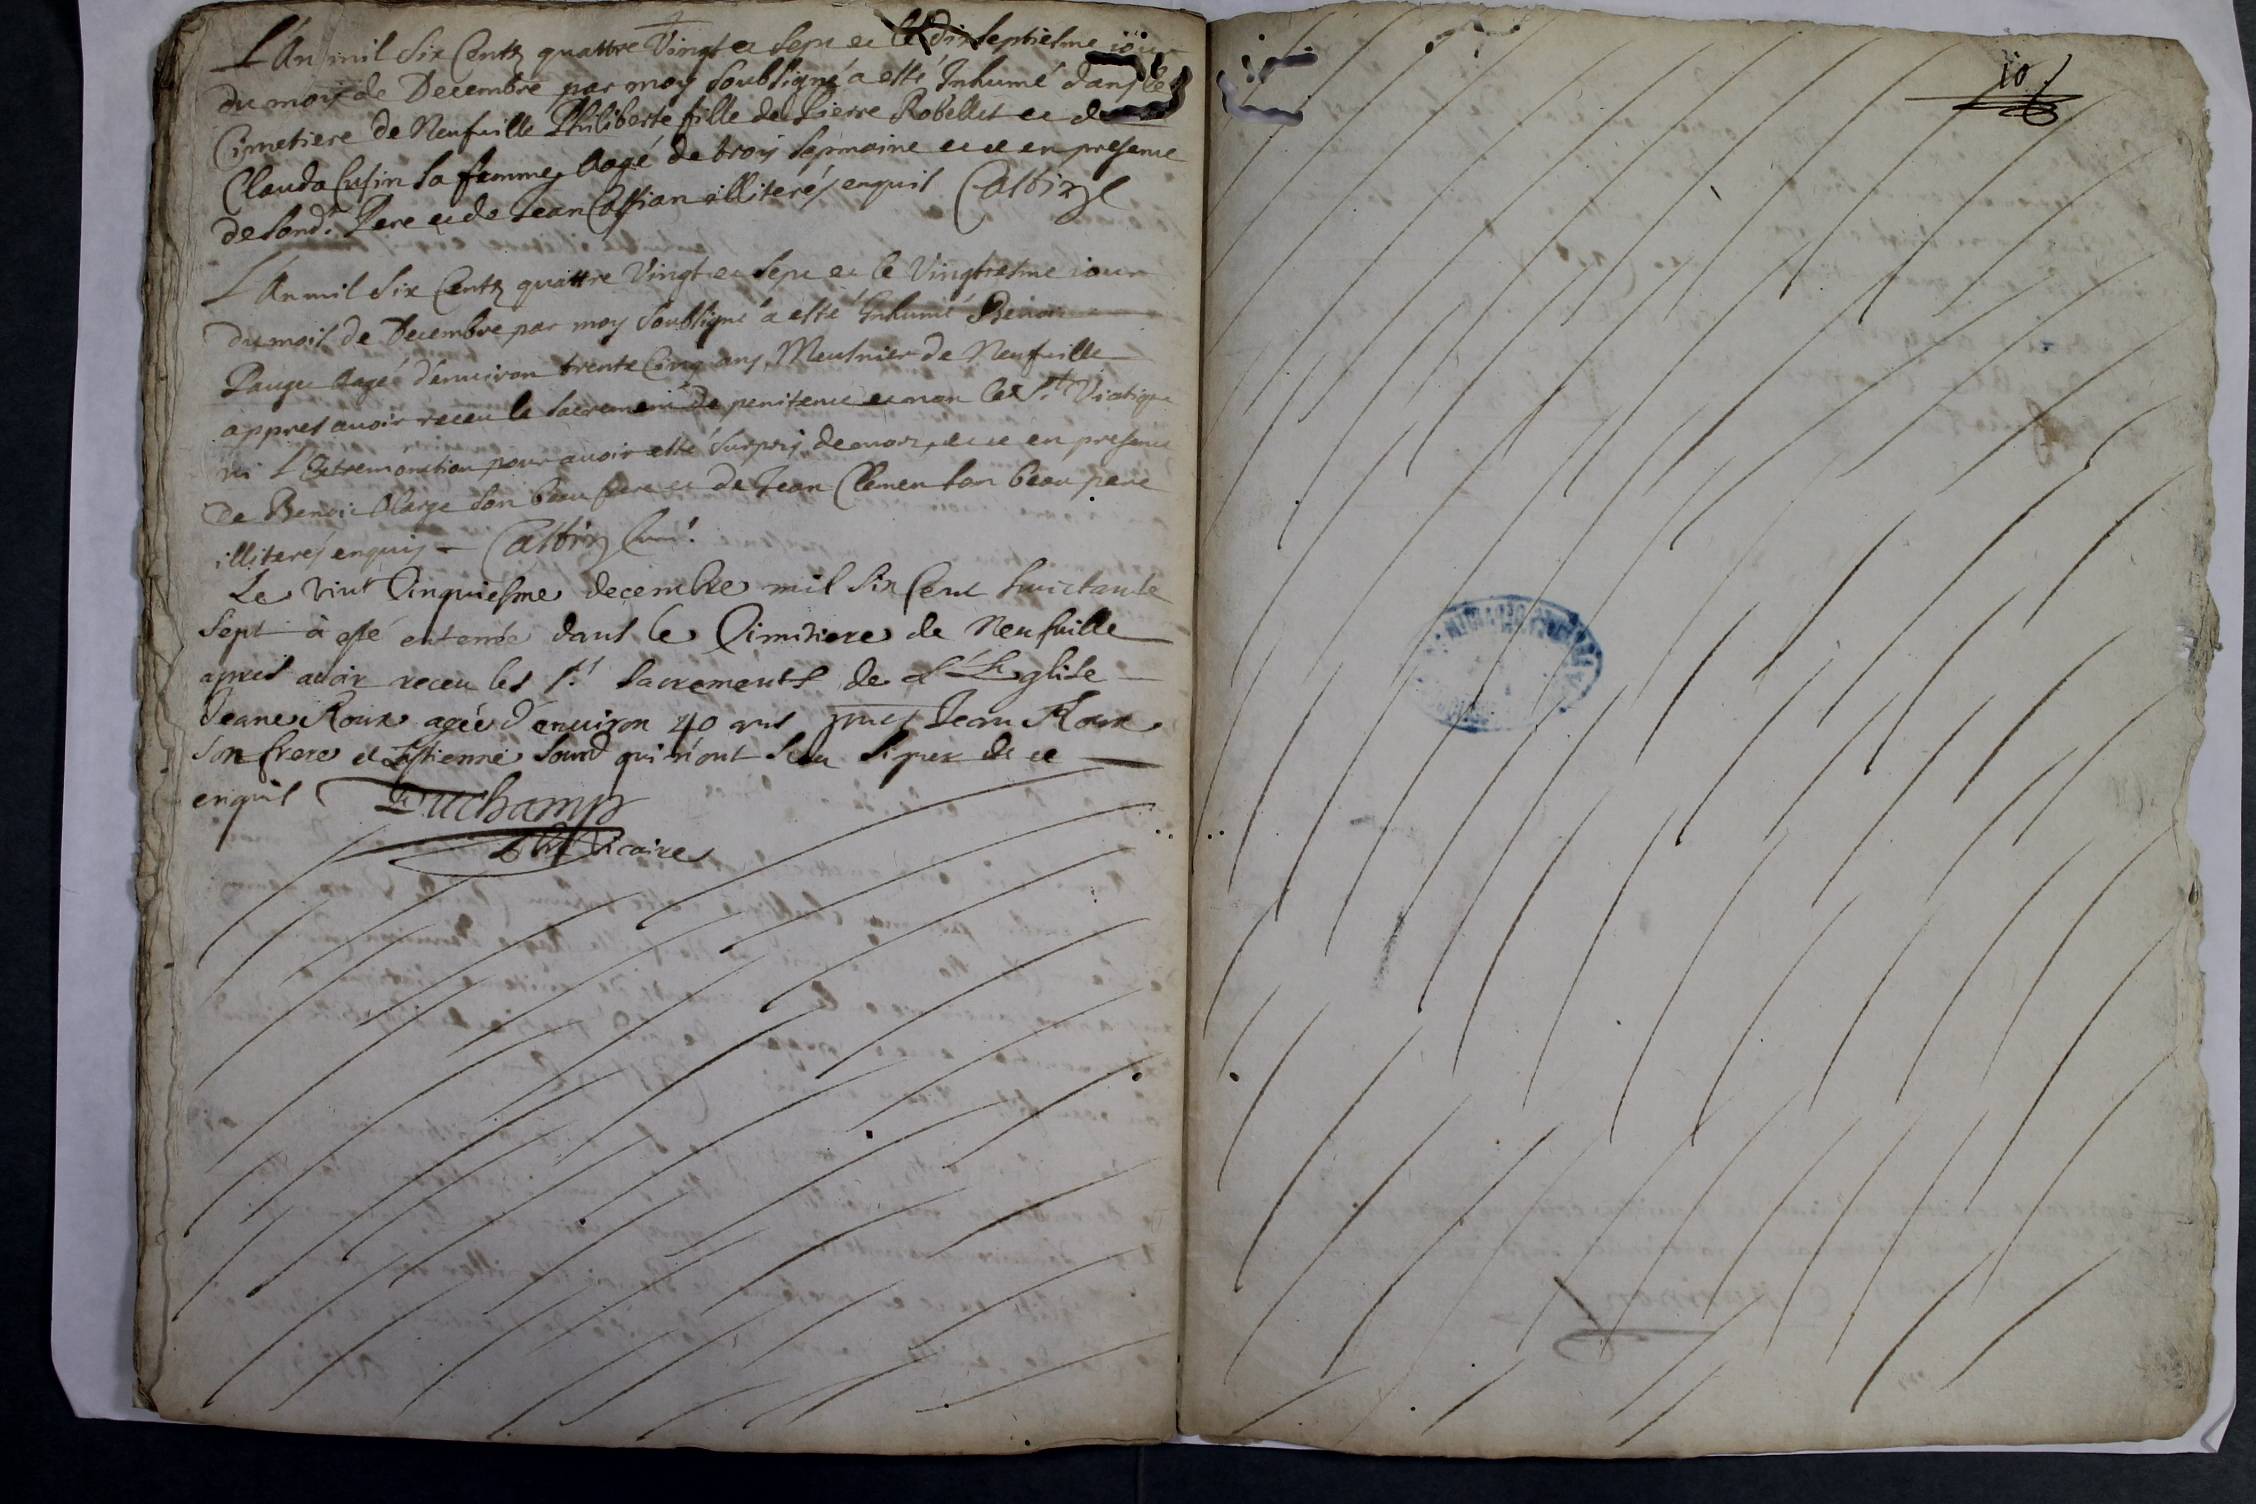 L'An mil six Centz quattre Vingt et sept et le dixseptiesme iour
du mois de Decembre par moy soubsigné a esté Inhumé dans le
Cimetiere de Neufuille Philiberte fille de Pierre Robellet et de
Clauda Cusin sa femme Aagé de trois sepmaine et ce en presence
de sond.t Pere et de Jean Cassian illiterés enquis
L'An mil six Centz quattre Vingt et sept et le Vingtiesme iour
du mois de Decembre par moy soubsigné a esté Inhumé Benoit
Aagée d'enuiron trente Cinq ans Meusnier de Neufuille
appres auoir receu le sacrement de penitence et non le St. Viatique
ni L'Extremonction pour auoir esté surpris de mort, et ce en presence
de Benoit son beau frere et de Jean Clement son beau pere
illiterés enquis Curé.
Le vint Cinquiesme decembre mil six Cent huictante
sept à esté enterrée dans le Cimitiere de Neufuille
apres auoir receu les Sts sacrements de L'Eglise
Jeane Roux agée d'enuiron 40 ans Jean Roux
son frere et Estienne sourd qui n'ont sceu signer de ce
enquis Duchamp
Vicaire
10